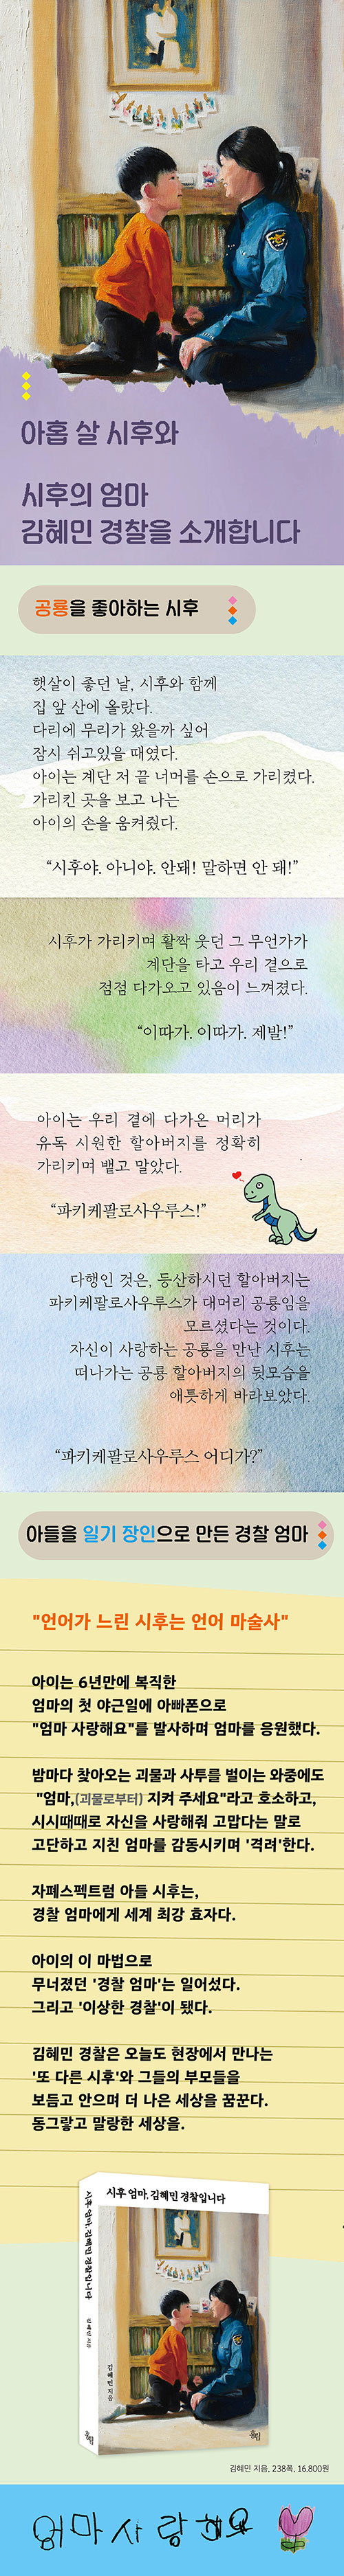 아홉 살 시후와
시후의 엄마
김혜민 경찰을 소개합니다
공룡을 좋아하는 시후
햇살이 좋던 날, 시후와 함께
집 앞 산에 올랐다.
다리에 무리가 왔을까 싶어
잠시 쉬고있을 때였다.
아이는 계단 저 끝 너머를 손으로 가리켰다.
가리킨 곳을 보고 나는
아이의 손을 움켜줬다.
“시후야. 아니야. 안돼! 말하면 안 돼!”
시후가 가리키며 활짝 웃던 그 무언가가
계단을 타고 우리 곁으로
점점 다가오고 있음이 느껴졌다.
“이따가. 이따가. 제발!”
아이는 우리 곁에 다가온 머리가
유독 시원한 할아버지를 정확히
가리키며 뱉고 말았다.
“파키케팔로사우루스!”
다행인 것은, 등산하시던 할아버지는
파키케팔로사우루스가 대머리 공룡임을
모르셨다는 것이다.
자신이 사랑하는 공룡을 만난 시후는
떠나가는 공룡 할아버지의 뒷모습을
애틋하게 바라보았다.
“파키케팔로사우루스 어디가?”
아들을 일기 장인으로 만든 경찰 엄마
"언어가 느린 시후는 언어 마술사"
아이는 6년만에 복직한
엄마의 첫 야근일에 아빠폰으로
"엄마 사랑해요"를 발사하며 엄마를 응원했다.
밤마다 찾아오는 괴물과 사투를 벌이는 와중에도
"엄마,(괴물로부터) 지켜 주세요"라고 호소하고,
시시때때로 자신을 사랑해줘 고맙다는 말로
고단하고 지친 엄마를 감동시키며 '격려'한다.
자폐스펙트럼 아들 시후는,
경찰 엄마에게 세계 최강 효자다.
아이의 이 마법으로
무너졌던 '경찰 엄마'는 일어섰다.
그리고 '이상한 경찰'이 됐다.
김혜민 경찰은 오늘도 현장에서 만나는
'또 다른 시후'와 그들의 부모들을
보듬고 안으며 더 나은 세상을 꿈꾼다.
동그랗고 말랑한 세상을.
시후 엄마, 김혜민 경찰입니다
시후 엄마, 김혜민 경찰입니다
김혜민 지음
김혜민 지음
홍림
홍림
김혜민 지음, 238쪽, 16,800원
엄마 사랑해요